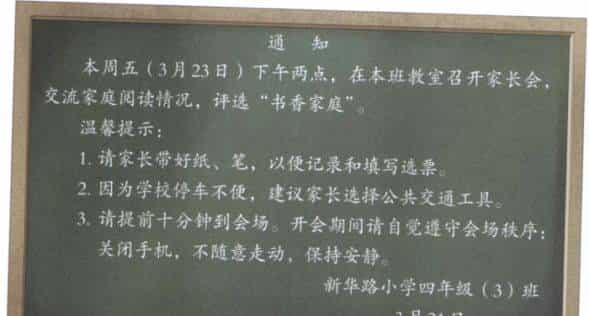 通 知
本周五（3月23日）下午两点，在本班教室召开家长会，
交流家庭阅读情况，评选“书香家庭”。
温馨提示：
1. 请家长带好纸、笔，以便记录和填写选票。
2. 因为学校停车不便，建议家长选择公共交通工具。
3. 请提前十分钟到会场。开会期间请自觉遵守会场秩序：
关闭手机，不随意走动，保持安静。
新华路小学四年级（3）班